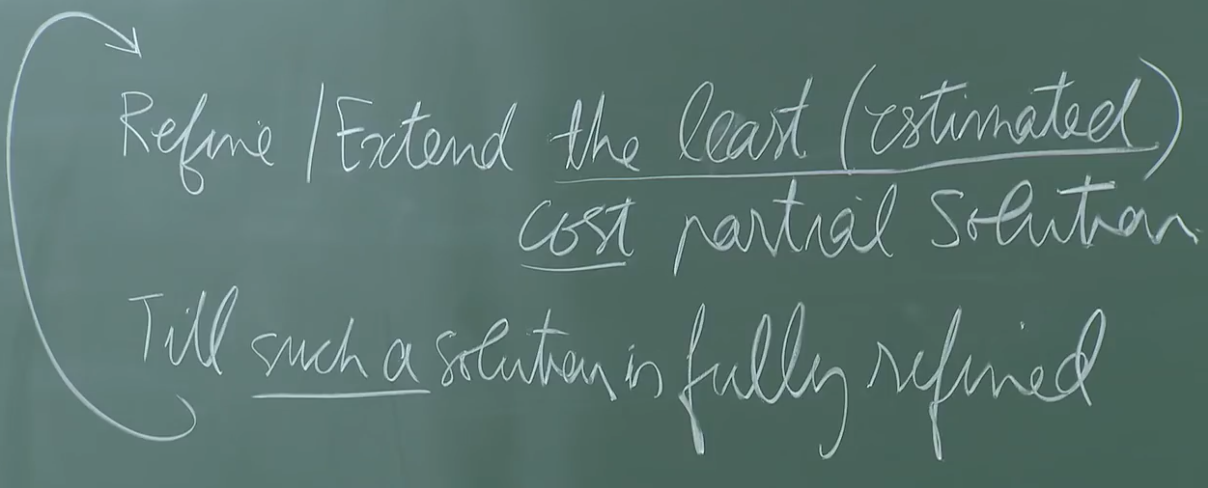 Refine / Extend the least (estimated)
cost partial solution
Till such a solution is fully refined